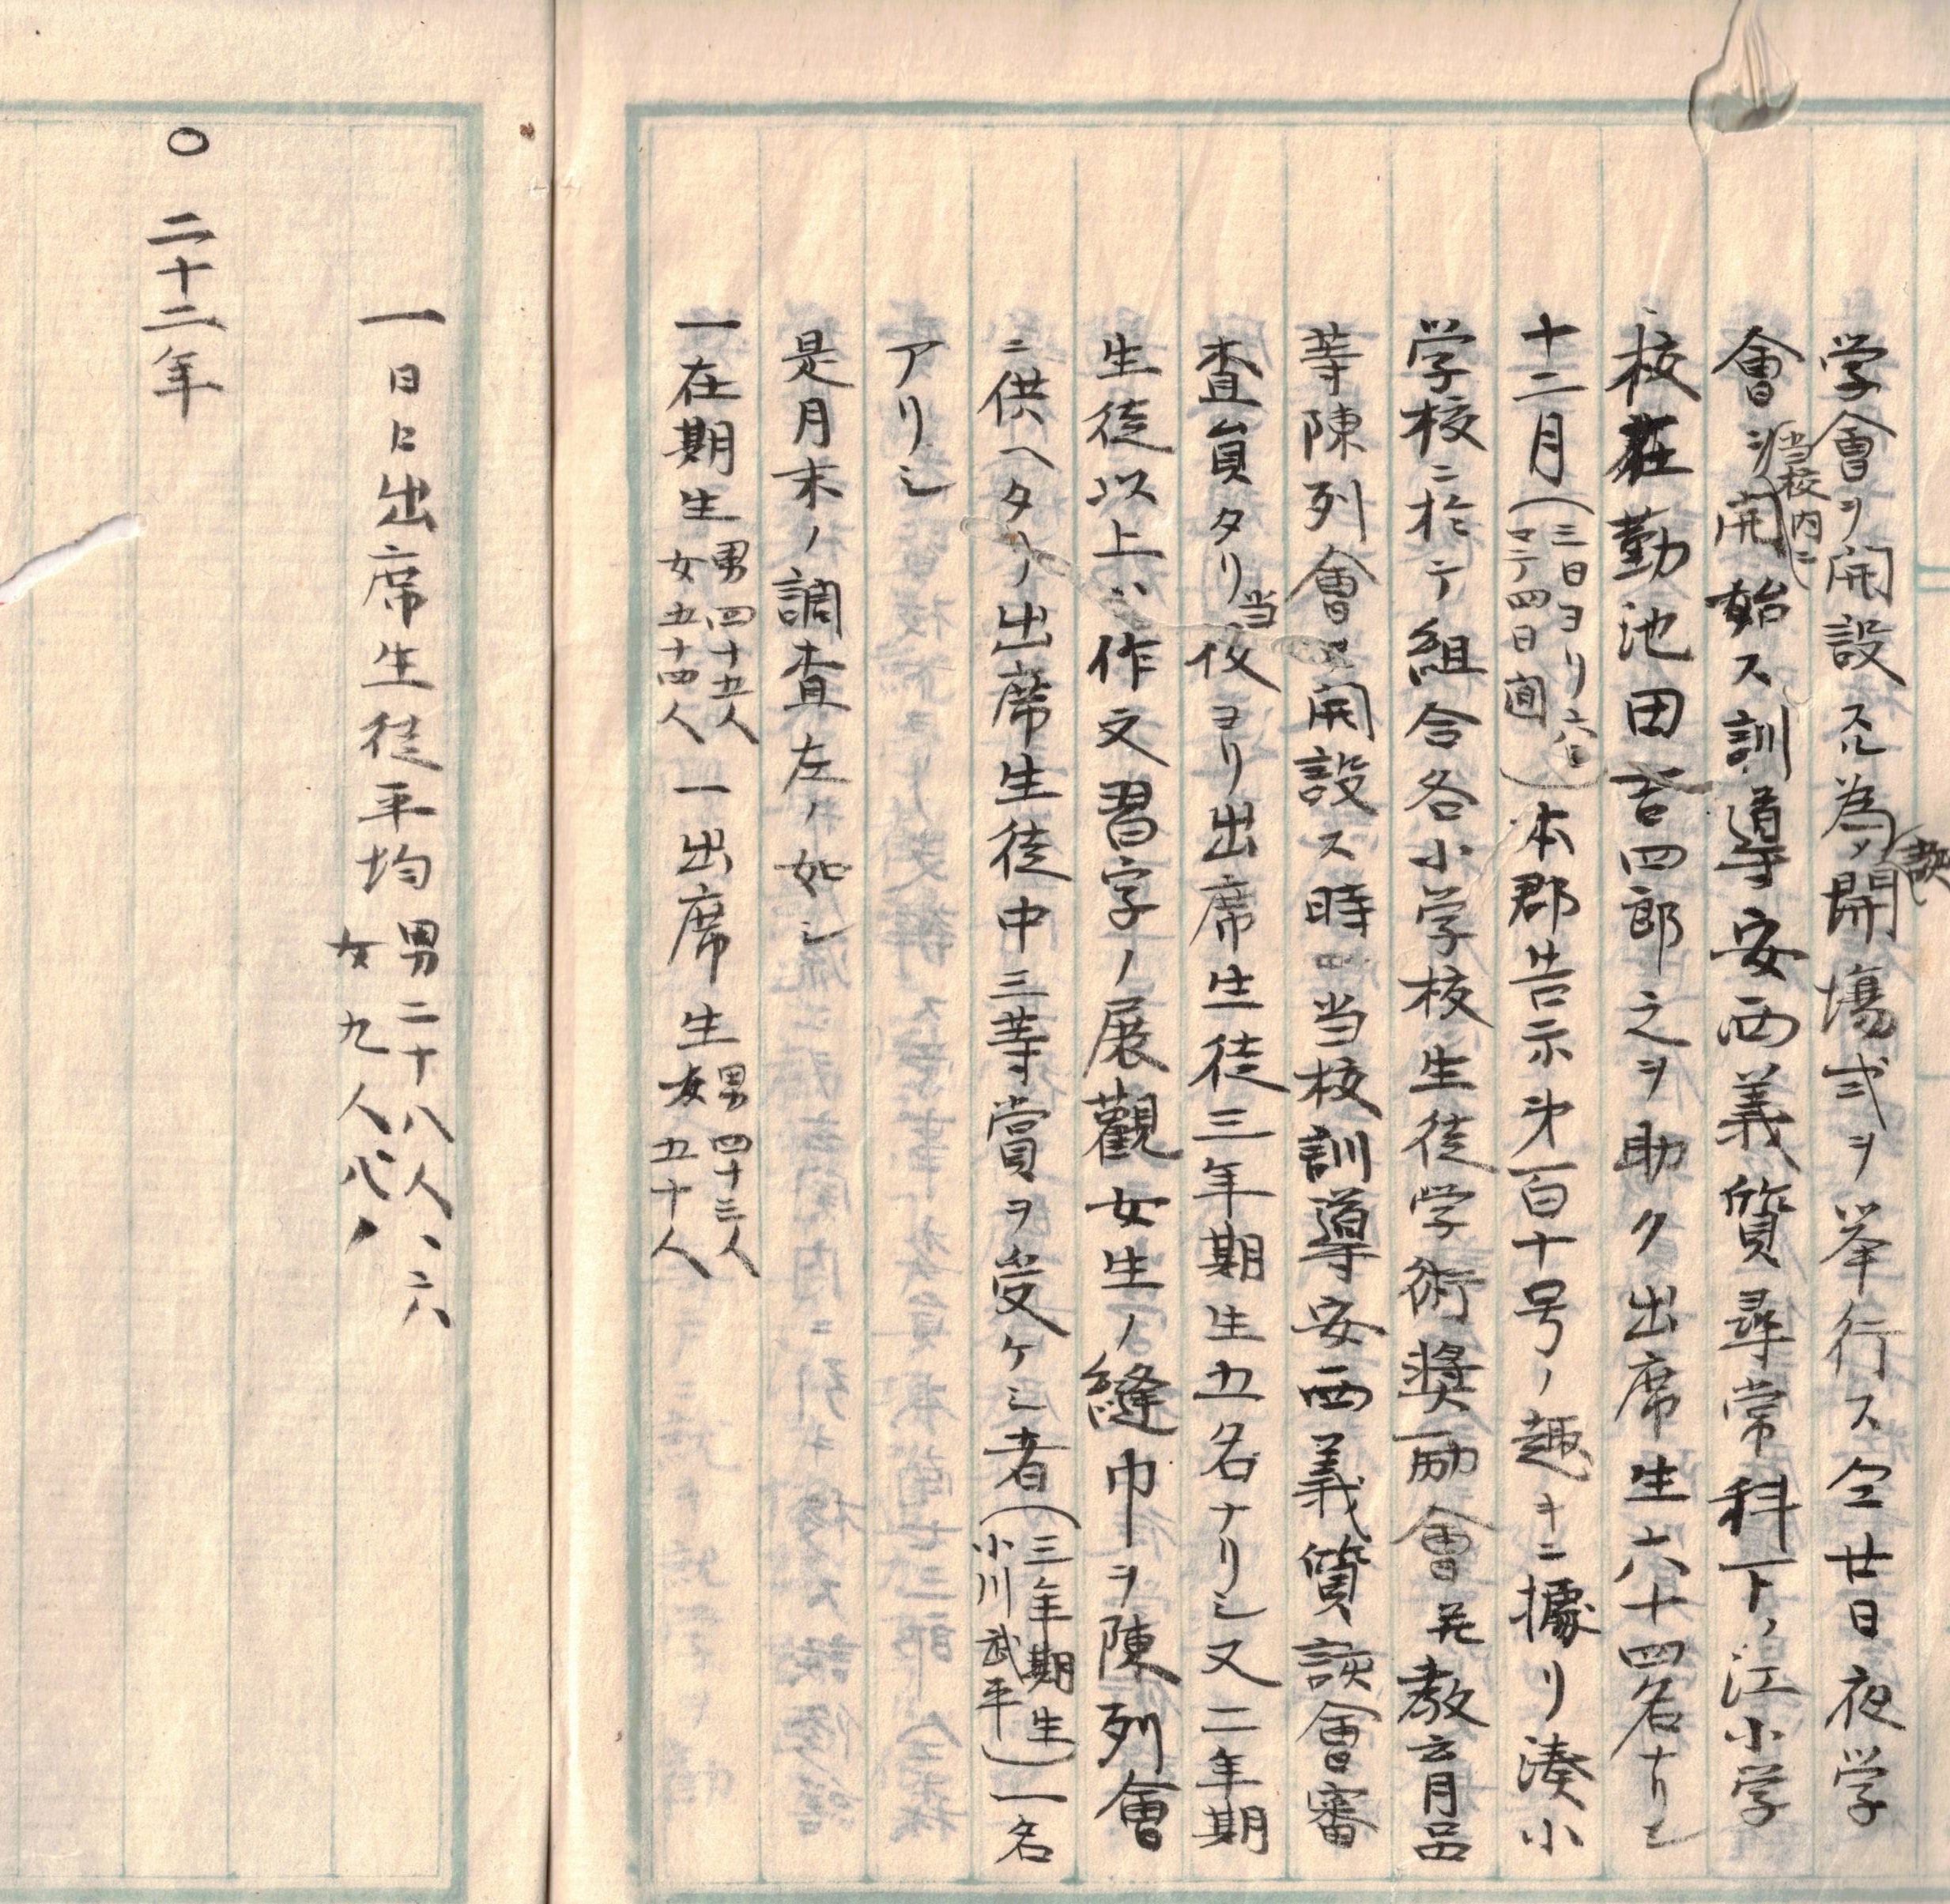 学會ヲ開設スル為メ開塲式ヲ挙行ス仝廿日夜学
該
會ヲ開始ス訓導安西義質尋常科下ノ江小学
当校内ニ
校在勤池田吉四郎之ヲ助ク出席生六十四名ナリシ
十二月(三日ヨリ六日
マテ四日間)本郡告示第百十号ノ趣キニ據リ湊小
学校ニ於テ組合各小学校生徒学術奨励會並教育品
等陳列會ヲ開設ス時ニ当校訓導安西義質該會審
査員タリ当夜ヨリ出席生徒三年期生五名ナリシ又二年期
生徒以上ハ作文習字ノ展觀女生ノ縫巾ヲ陳列會
ニ供ヘタリ出席生徒中三等賞ヲ受ケシ者(三年期生
小川武平)一名
アリシ
是月末ノ調査左ノ如シ
一在期生男四十五人
女五十四人 一出席生男四十三人
女五十人
一日々出席生徒平均男二十八人、六
女九人八
〇二十二年